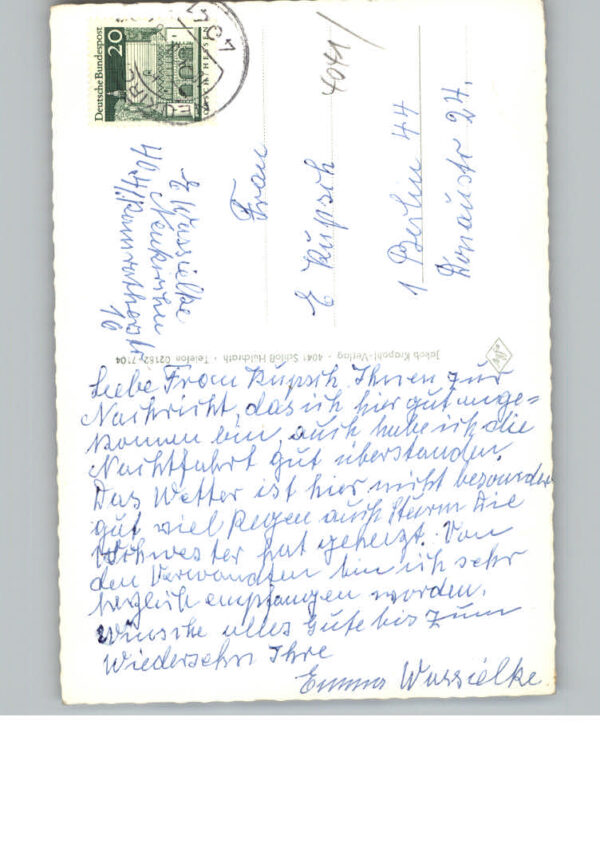 Deutsche Bundespost
20
404
4041/
E Wassielke
Neukirchen
404/
10
Frau
E Kupsch
1 Berlin 44
Donaustr 24.
Jakob Krapohl-Verlag · 4041 Schloß Hülchrath · Telefon 02182/7104
Liebe Frau Kupsch. Ihnen zur
Nachricht, das ich hier gut ange=
kommen bin, auch habe ich die
Nachtfahrt gut überstanden.
Das Wetter ist hier nicht besonder
gut viel Regen auch Sturm Die
Schwester hat geheizt. Von
den Verwandten bin ich sehr
herzlich empfangen worden.
Wünsche alles Gute bis zum
Wiedersehn Ihre
Emma Wassielke